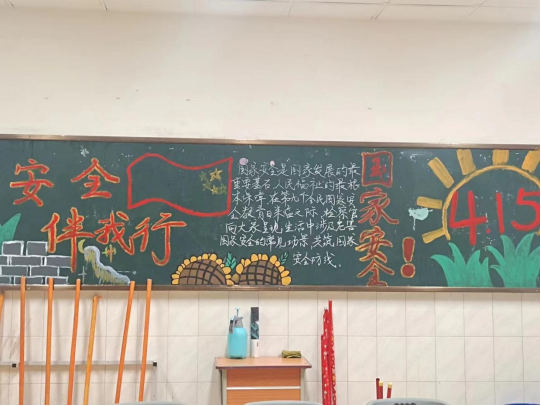 安全
伴我行
国家安全是国家发展的最
重要基石，人民福祉的最根
本保障，在第九个全民国家安
全教育日来临之际，检察官
向大家呈现生活中涉及危害
国家安全的常见场景，共筑国家
安全防线。
国家安全！
415